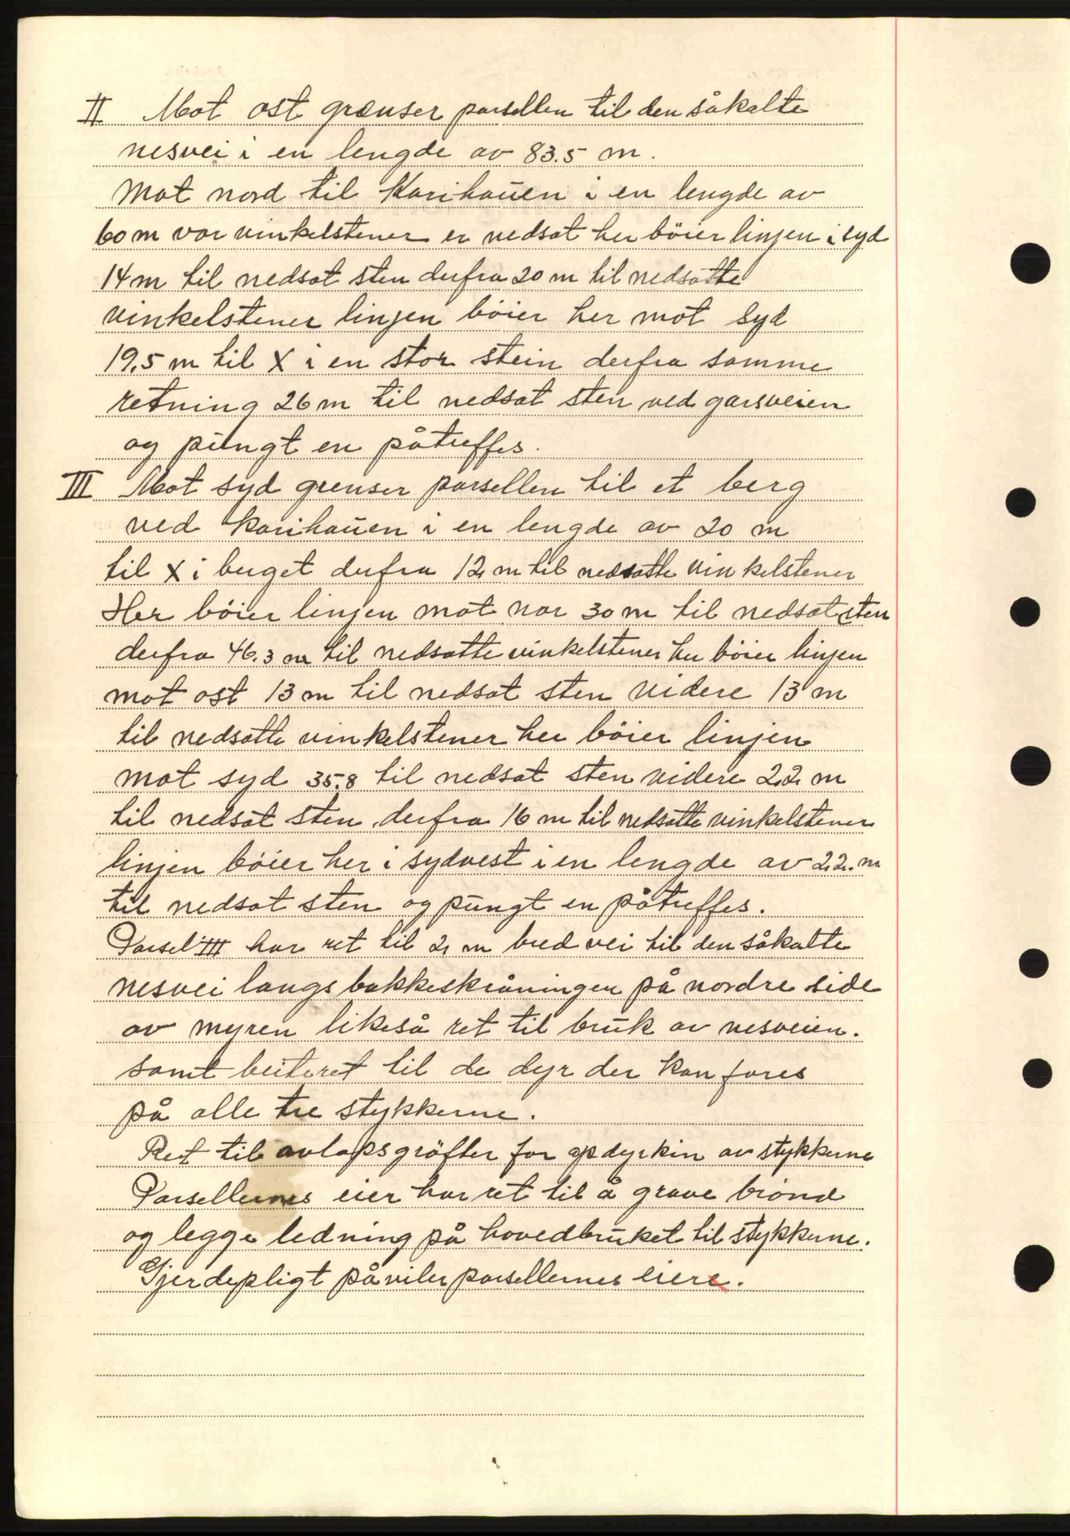 II Mot ost grænser parsellen til den såkalte
nesvei i en lengde av 83.5 m.
Mot nord til Karihauen i en lengde av
60 m vor vinkelstener er nedsat her böier linjen i syd
14 m til nedsat sten derfra 20 m til nedsatte
vinkelstener linjen böier her mot syd
19,5 m til X i en stor stein derfra samme
retning 26 m til nedsat sten ved garsveien
og pungt en påtreffes.
III Mot syd grenser parsellen til et berg
ved karihauen i en lengde av 20 m
til X i berget derfra 12 m til nedsatte vinkelstener
Her böier linjen mot nor 30 m til nedsat sten
derfra 46.3 m til nedsatte vinkelstener her böier linjen
mot ost 13 m til nedsat sten videre 13 m
til nedsatte vinkelstener her böier linjen
mot syd 35.8 til nedsat sten videre 22 m
til nedsat sten derfra 16 m til nedsatte vinkelstener
linjen böier her i sydvest i en lengde av 22. m
til nedsat sten og pungt en påtreffes.
Parsel III har ret til 2 m bred vei til den såkalte
nesvei langs bakkeskråningen på nordre side
av myren likeså ret til bruk av nesveien.
samt beiteret til de dyr der kan fores
på alle tre stykkerne.
Ret til avlöpsgröfter for opdyrkin av stykkerne
Parsellernes eier har ret til å grave brönd
og legge ledning på hovedbruket til stykkerne.
Gjerdepligt påviler parsellernes eiere.